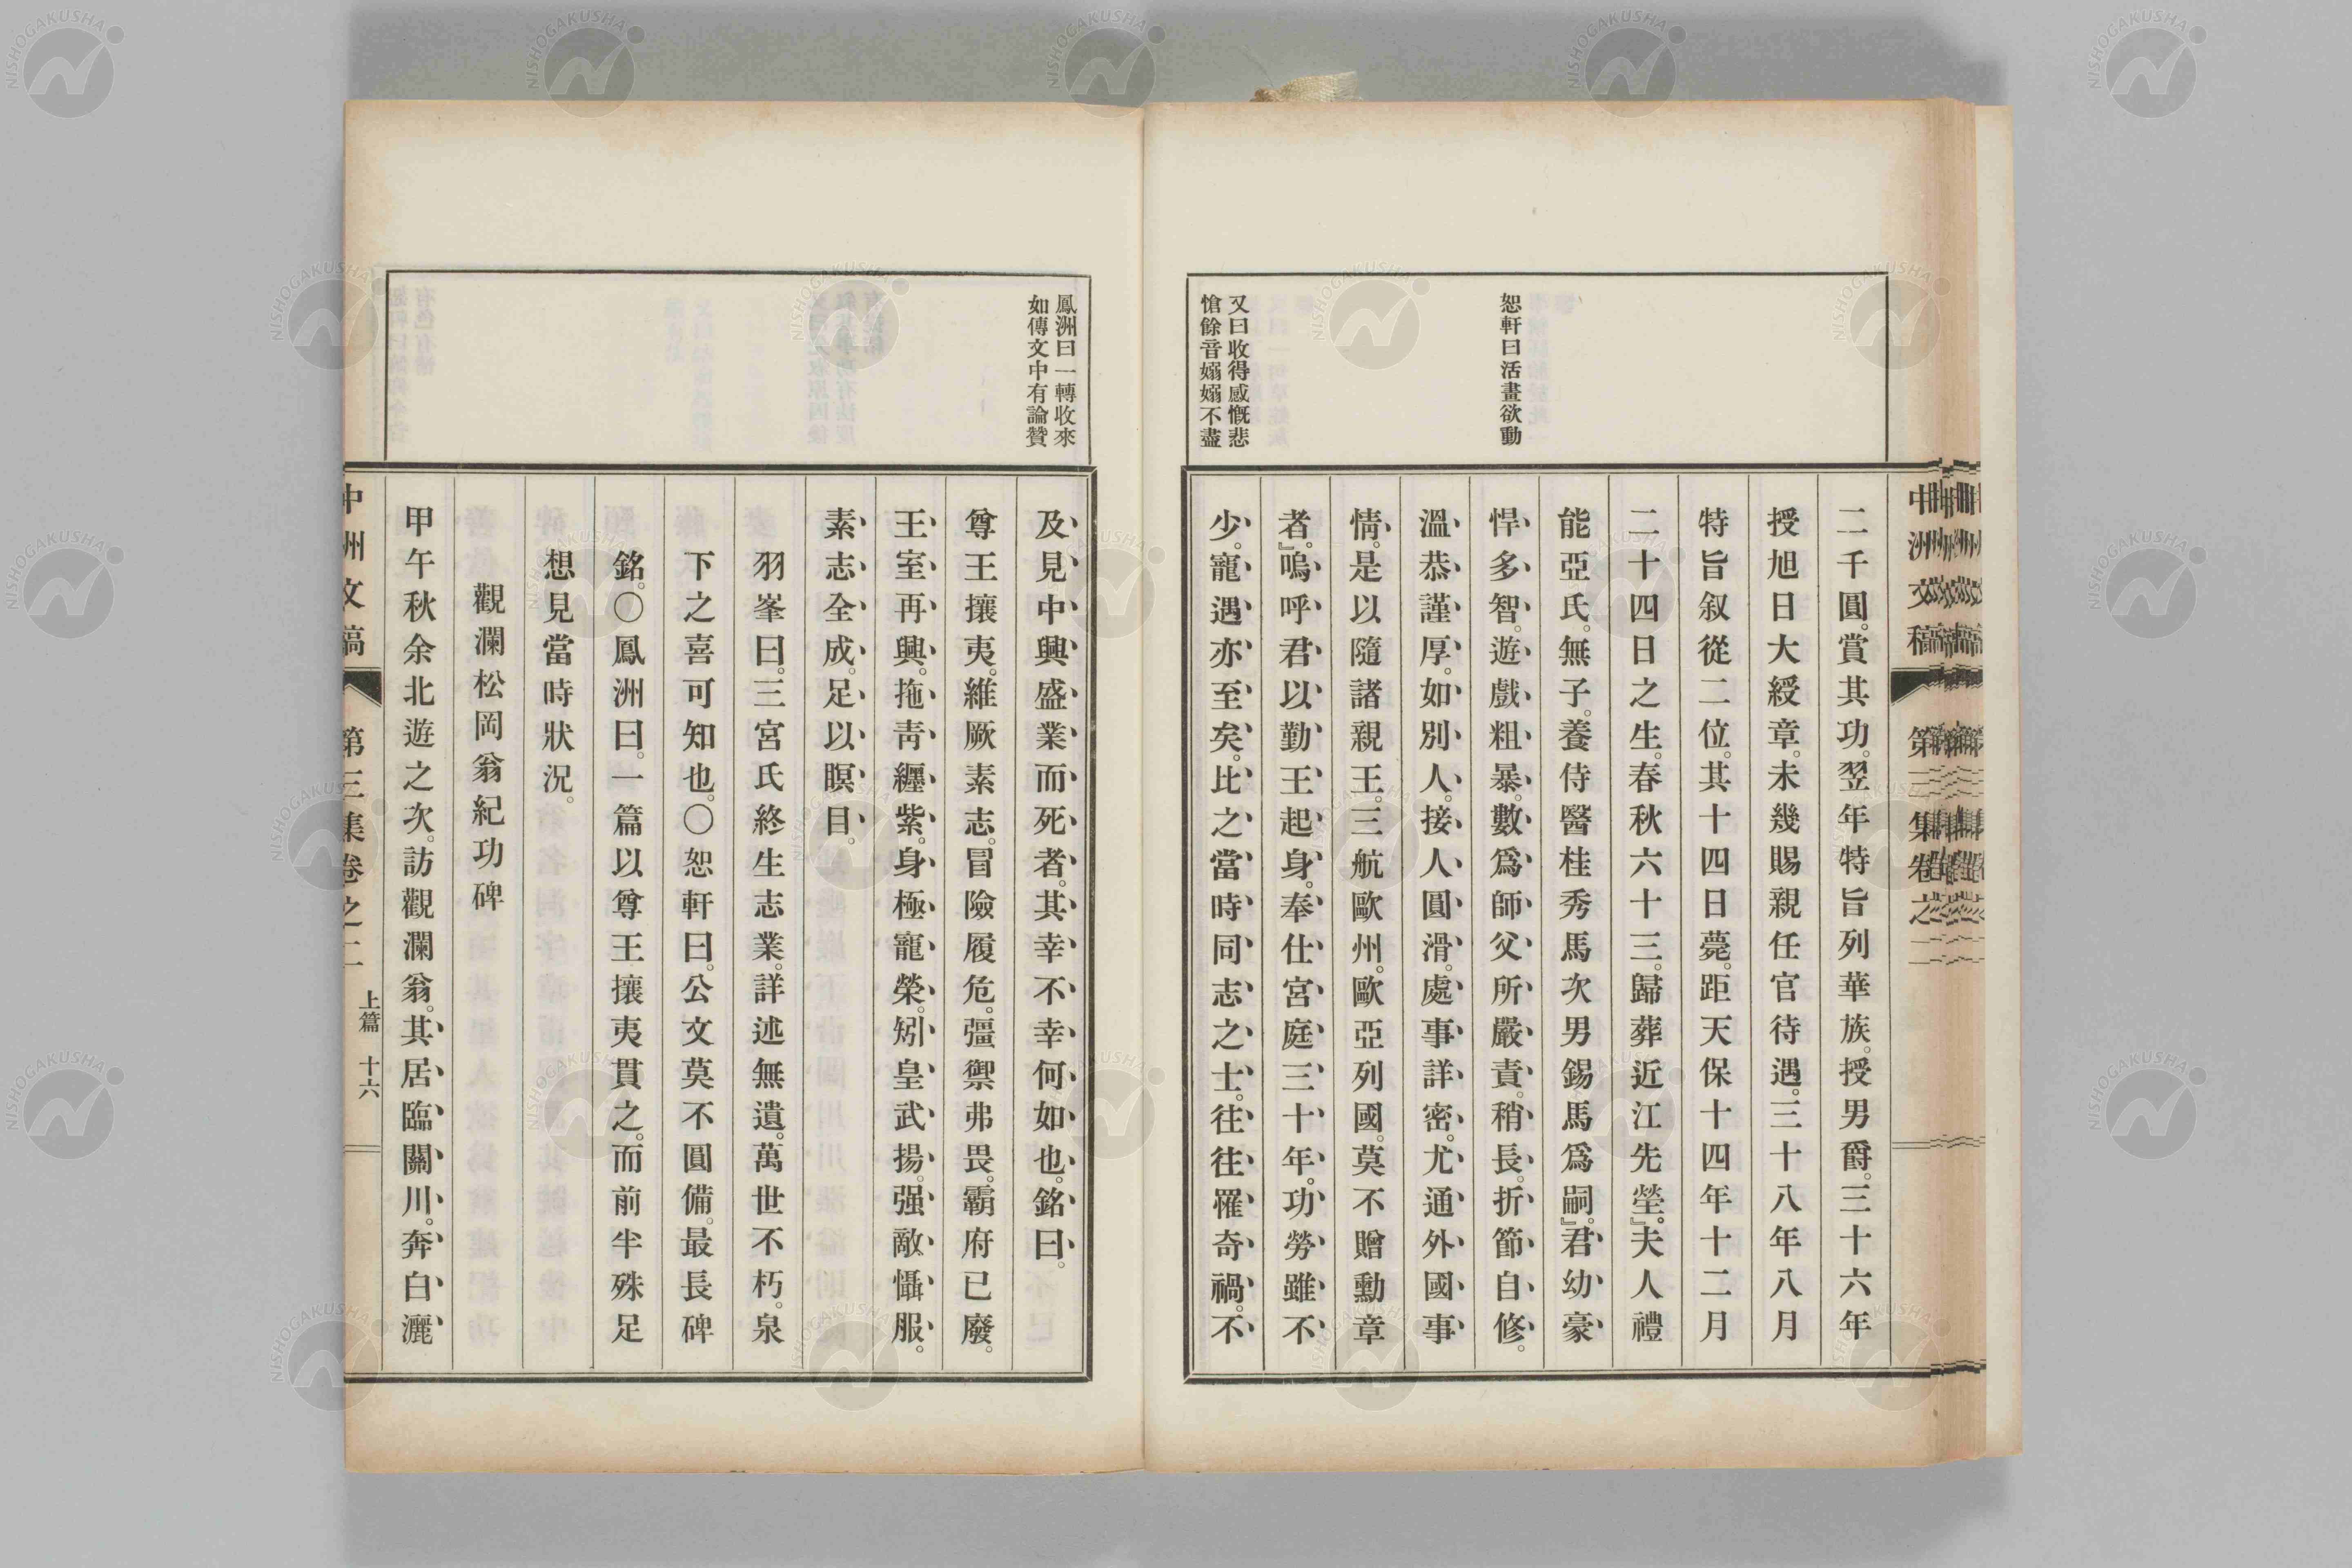 恕軒曰活畫欲動
又曰收得感慨悲
愴餘音嫋嫋不盡
二千圓。賞其功。翌年特旨列華族。授男爵。三十六年
授旭日大綬章。未幾賜親任官待遇。三十八年八月
特旨叙從二位。其十四日薨。距天保十四年十二月
二十四日之生。春秋六十三。歸葬近江先塋。』夫人禮
能亞氏。無子。養侍醫桂秀馬次男錫馬爲嗣。』君幼豪
悍多智。遊戲粗暴。數爲師父所嚴責。稍長。折節自修。
溫恭謹厚。如別人。接人圓滑。處事詳密。尤通外國事
情。是以隨諸親王。三航歐州。歐亞列國。莫不贈勳章
者。』嗚呼君以勤王起身。奉仕宮庭三十年。功勞雖不
少。寵遇亦至矣。比之當時同志之士。往往罹奇禍。不
鳳洲曰一轉收來
如傳文中有論贊
及見中興盛業而死者。其幸不幸何如也。銘曰。
尊王攘夷。維厥素志。冒險履危。彊禦弗畏。霸府已廢。
王室再興。拖靑纒紫。身極寵榮。矧皇武揚。强敵懾服。
素志全成。足以瞑目。
羽峯曰。三宮氏終生志業。詳述無遺。萬世不朽。泉
下之喜可知也。〇恕軒曰。公文莫不圓備。最長碑
銘。〇鳳洲曰。一篇以尊王攘夷貫之。而前半殊足
想見當時狀況。
觀瀾松岡翁紀功碑
甲午秋余北遊之次。訪觀瀾翁。其居臨關川。奔白灑
中洲文稿 第三集卷之二 上篇 十六